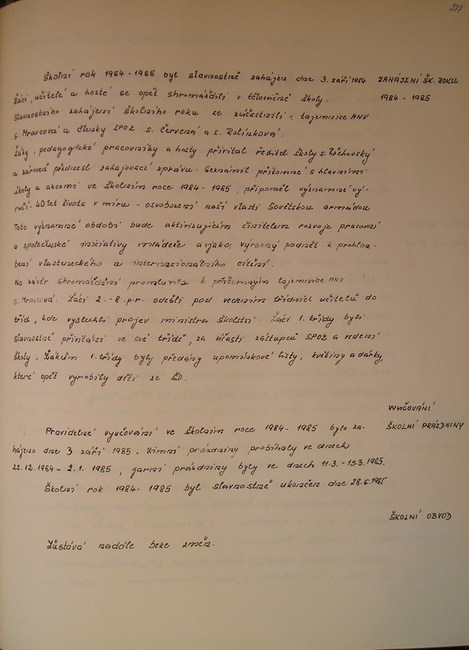 277
Školní rok 1984-1985 byl slavnostně zahájen dne 3. září 1984 ZAHÁJENÍ ŠK. ROKU
Žáci, učitelé a hosté se opět shromáždili v tělocvičně školy. 1984 - 1985
Slavnostního zahájení školního roku se zúčastnili - tajemnice MNV
s. Mravcová a členky SPOZ s. Červená a s.
Žáky, pedagogické pracovníky a hosty přivítal ředitel školy s.
a zároveň přednesl zahajovací zprávu. Seznámil přítomné s hlavními
úkoly a akcemi ve školním roce 1984-1985, připomněl významné vý-
ročí 40 let života v míru - osvobození naší vlasti Sovětskou armádou
Toto významné období bude aktivizujícím činitelem rozvoje pracovní
a společenské iniciativy mládeže a jako výrazný podnět k prohlou-
bení vlasteneckého a internacionálního cítění.
Na závěr shromáždění promluvila k přítomným tajemnice MNV
s. Mravcová. Žáci 2.-8. p.r. odešli pod vedením třídních učitelů do
tříd, kde vyslechli projev ministra školství. Žáci 1. třídy byli
slavnostně přivítáni ve své třídě, za účasti zástupců SPOZ a vedení
školy. Žákům 1. třídy byly předány upomínkové listy, květiny a dárky,
které opět vyrobily děti ze ŠD.
VYUČOVÁNÍ
Pravidelné vyučování ve školním roce 1984-1985 bylo za- ŠKOLNÍ PRÁZDNINY
hájeno dne 3. září 1985. Zimní prázdniny probíhaly ve dnech
22.12.1984 - 2.1.1985, jarní prázdniny byly ve dnech 11.3.-15.3.1985.
Školní rok 1984-1985 byl slavnostně ukončen dne 28.6.1985
ŠKOLNÍ OBVOD
Zůstává nadále beze změn.